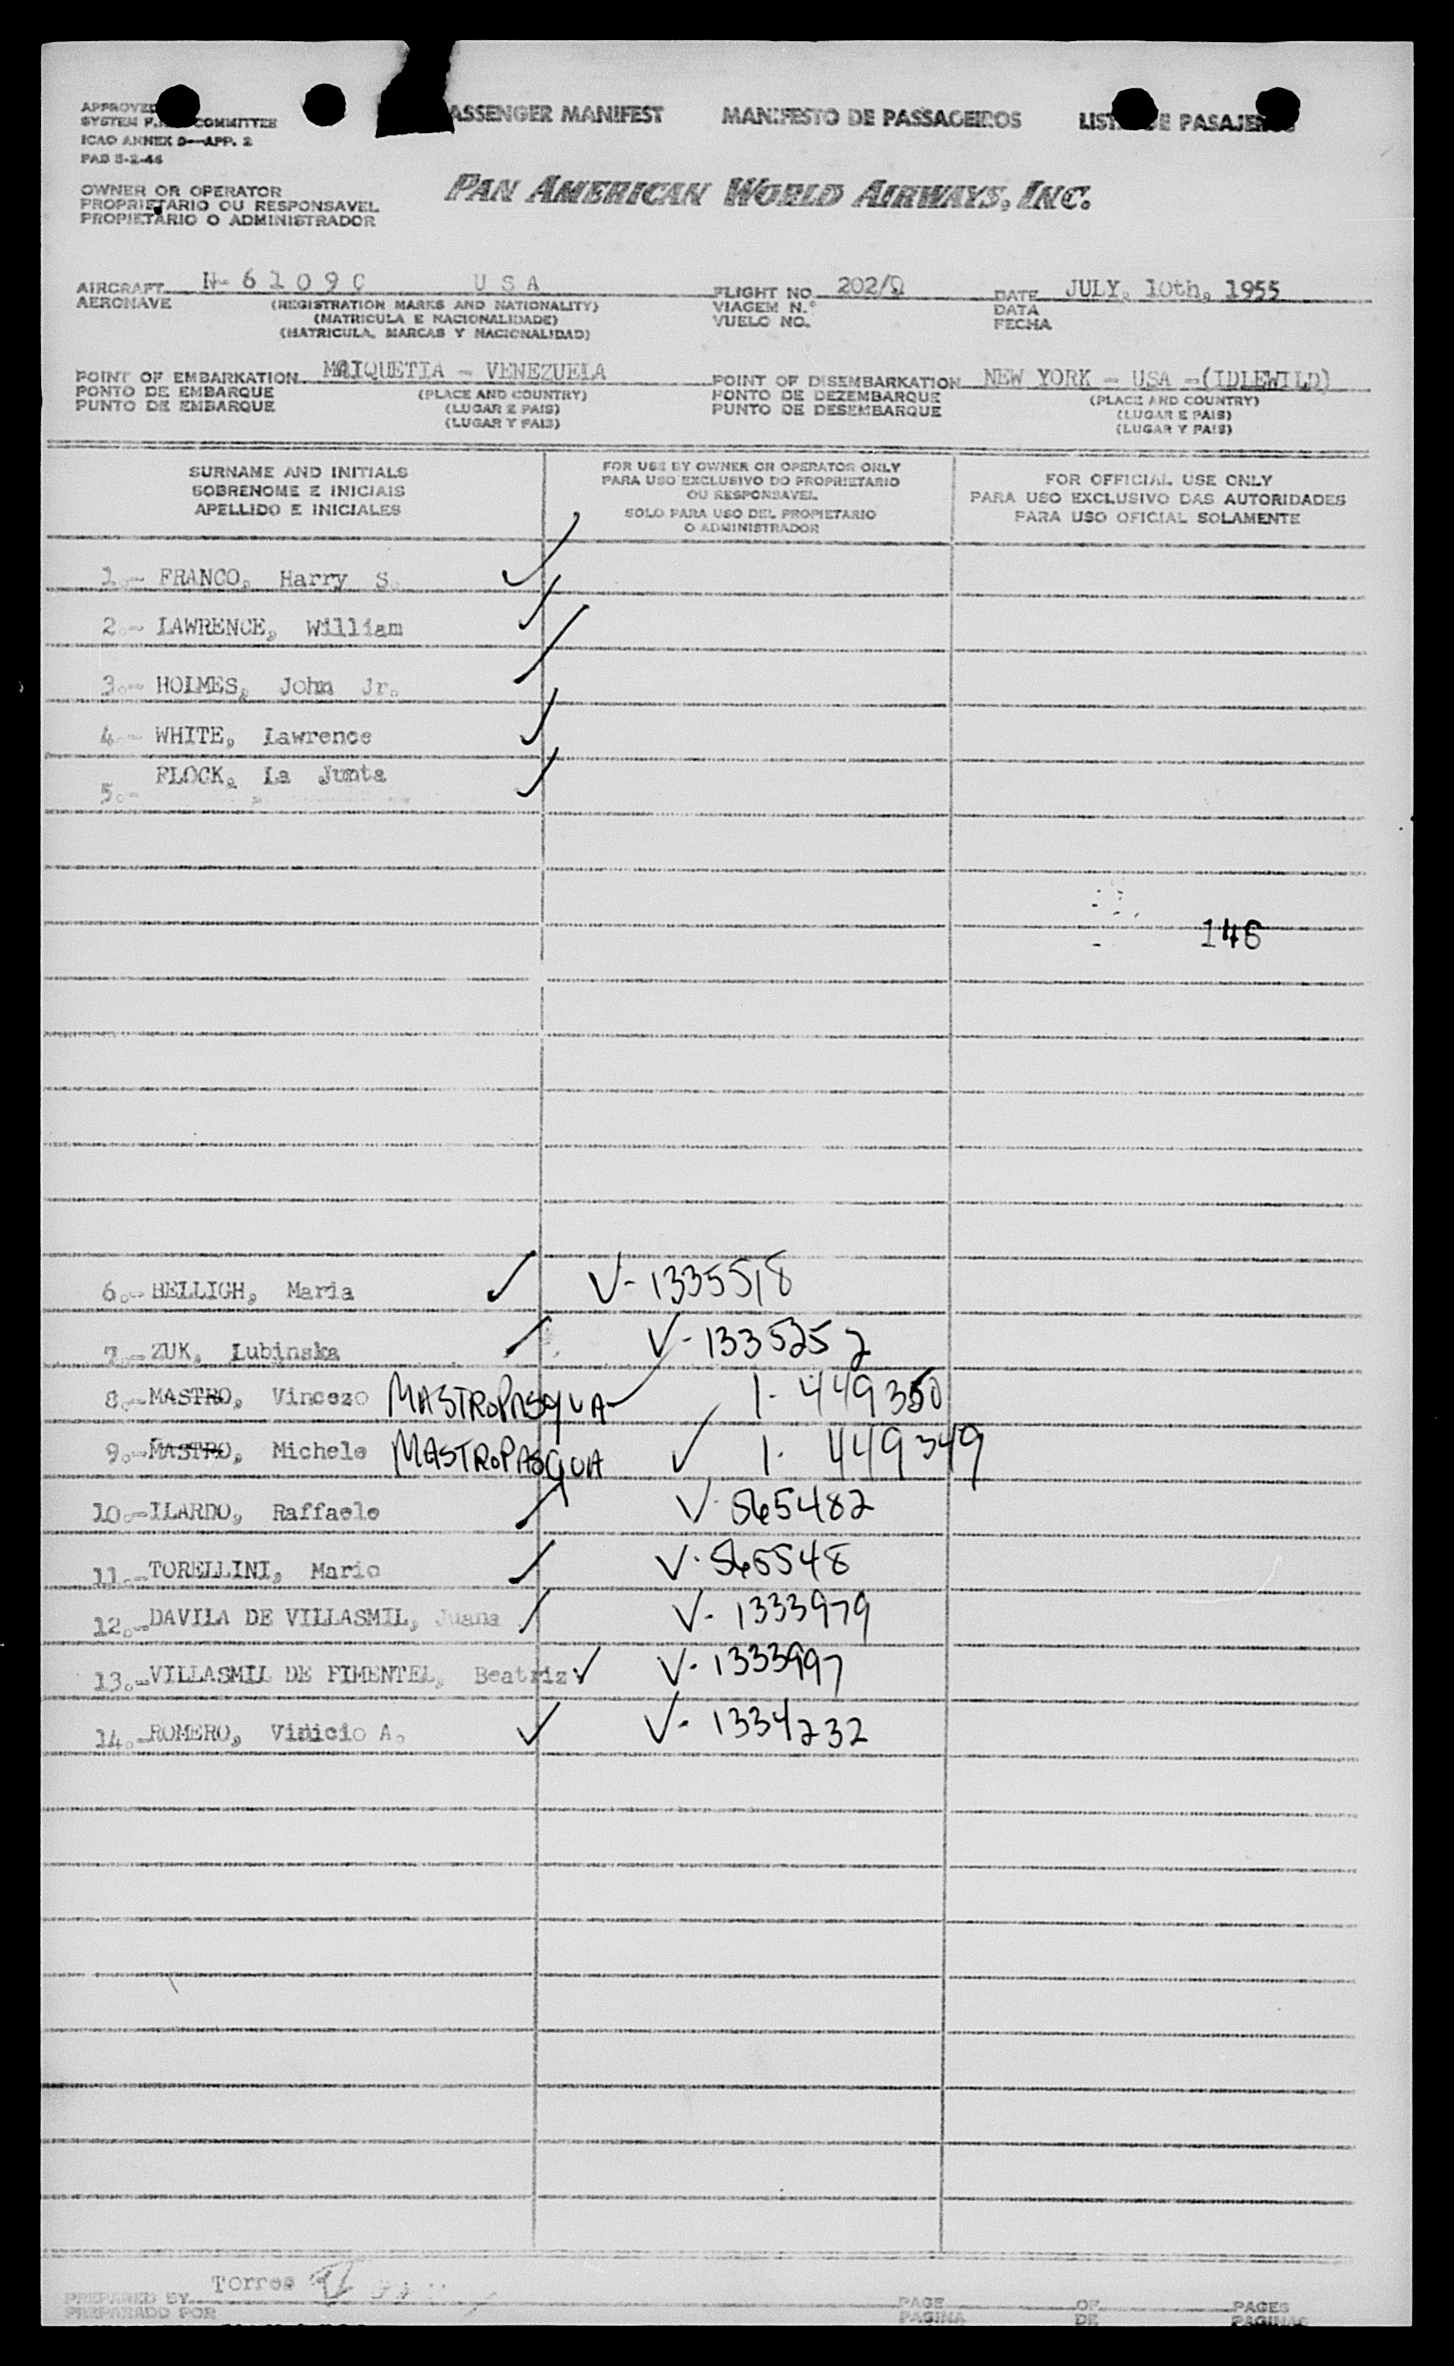 APPROVED
SYSTEM F. COMMITTEE
ICAO ANNEX 9—APP. 2
PAB 5-2-46
PASSENGER MANIFEST MANIFESTO DE PASSAGEIROS LISTA DE PASAJEROS
OWNER OR OPERATOR
PROPRIETARIO OU RESPONSAVEL
PROPIETARIO O ADMINISTRADOR
PAN AMERICAN WORLD AIRWAYS, INC.
AIRCRAFT N-6109C USA FLIGHT NO. 202/Q DATE JULY, 10th, 1955
AERONAVE (REGISTRATION MARKS AND NATIONALITY) VIAGEM N.° DATA
(MATRICULA E NACIONALIDADE) VUELO NO. FECHA
(MATRICULA, MARCAS Y NACIONALIDAD)
POINT OF EMBARKATION MAIQUETIA - VENEZUELA POINT OF DISEMBARKATION NEW YORK - USA -(IDLEWILD)
PONTO DE EMBARQUE (PLACE AND COUNTRY) PONTO DE DEZEMBARQUE (PLACE AND COUNTRY)
PUNTO DE EMBARQUE (LUGAR E PAIS) PUNTO DE DESEMBARQUE (LUGAR E PAIS)
(LUGAR Y PAIS) (LUGAR Y PAIS)
SURNAME AND INITIALS
SOBRENOME E INICIAIS
APELLIDO E INICIALES
FOR USE BY OWNER OR OPERATOR ONLY
PARA USO EXCLUSIVO DO PROPRIETARIO
OU RESPONSAVEL
SOLO PARA USO DEL PROPIETARIO
O ADMINISTRADOR
FOR OFFICIAL USE ONLY
PARA USO EXCLUSIVO DAS AUTORIDADES
PARA USO OFICIAL SOLAMENTE
1.- FRANCO, Harry S.
2.- LAWRENCE, William
3.- HOLMES, John Jr.
4.- WHITE, Lawrence
5.- FLOCK, La Junta
146
6.- BELLIGH, Maria V-1335518
7.- ZUK, Lubinska V-1335252
8.- MASTRO, Vincezo MASTROPASQUA 1. 449350
9.- MASTRO, Michele MASTROPASQUA 1. 449349
10.- ILARDO, Raffaele V. 565482
11.- TORELLINI, Mario V. 565548
12.- DAVILA DE VILLASMIL, Juana V- 1333979
13.- VILLASMIL DE PIMENTEL, Beatriz V- 1333997
14.- ROMERO, Vinicio A. V- 1334232
PREPARED BY Torres PAGE OF PAGES
PREPARADO POR PAGINA DE PAGINAS